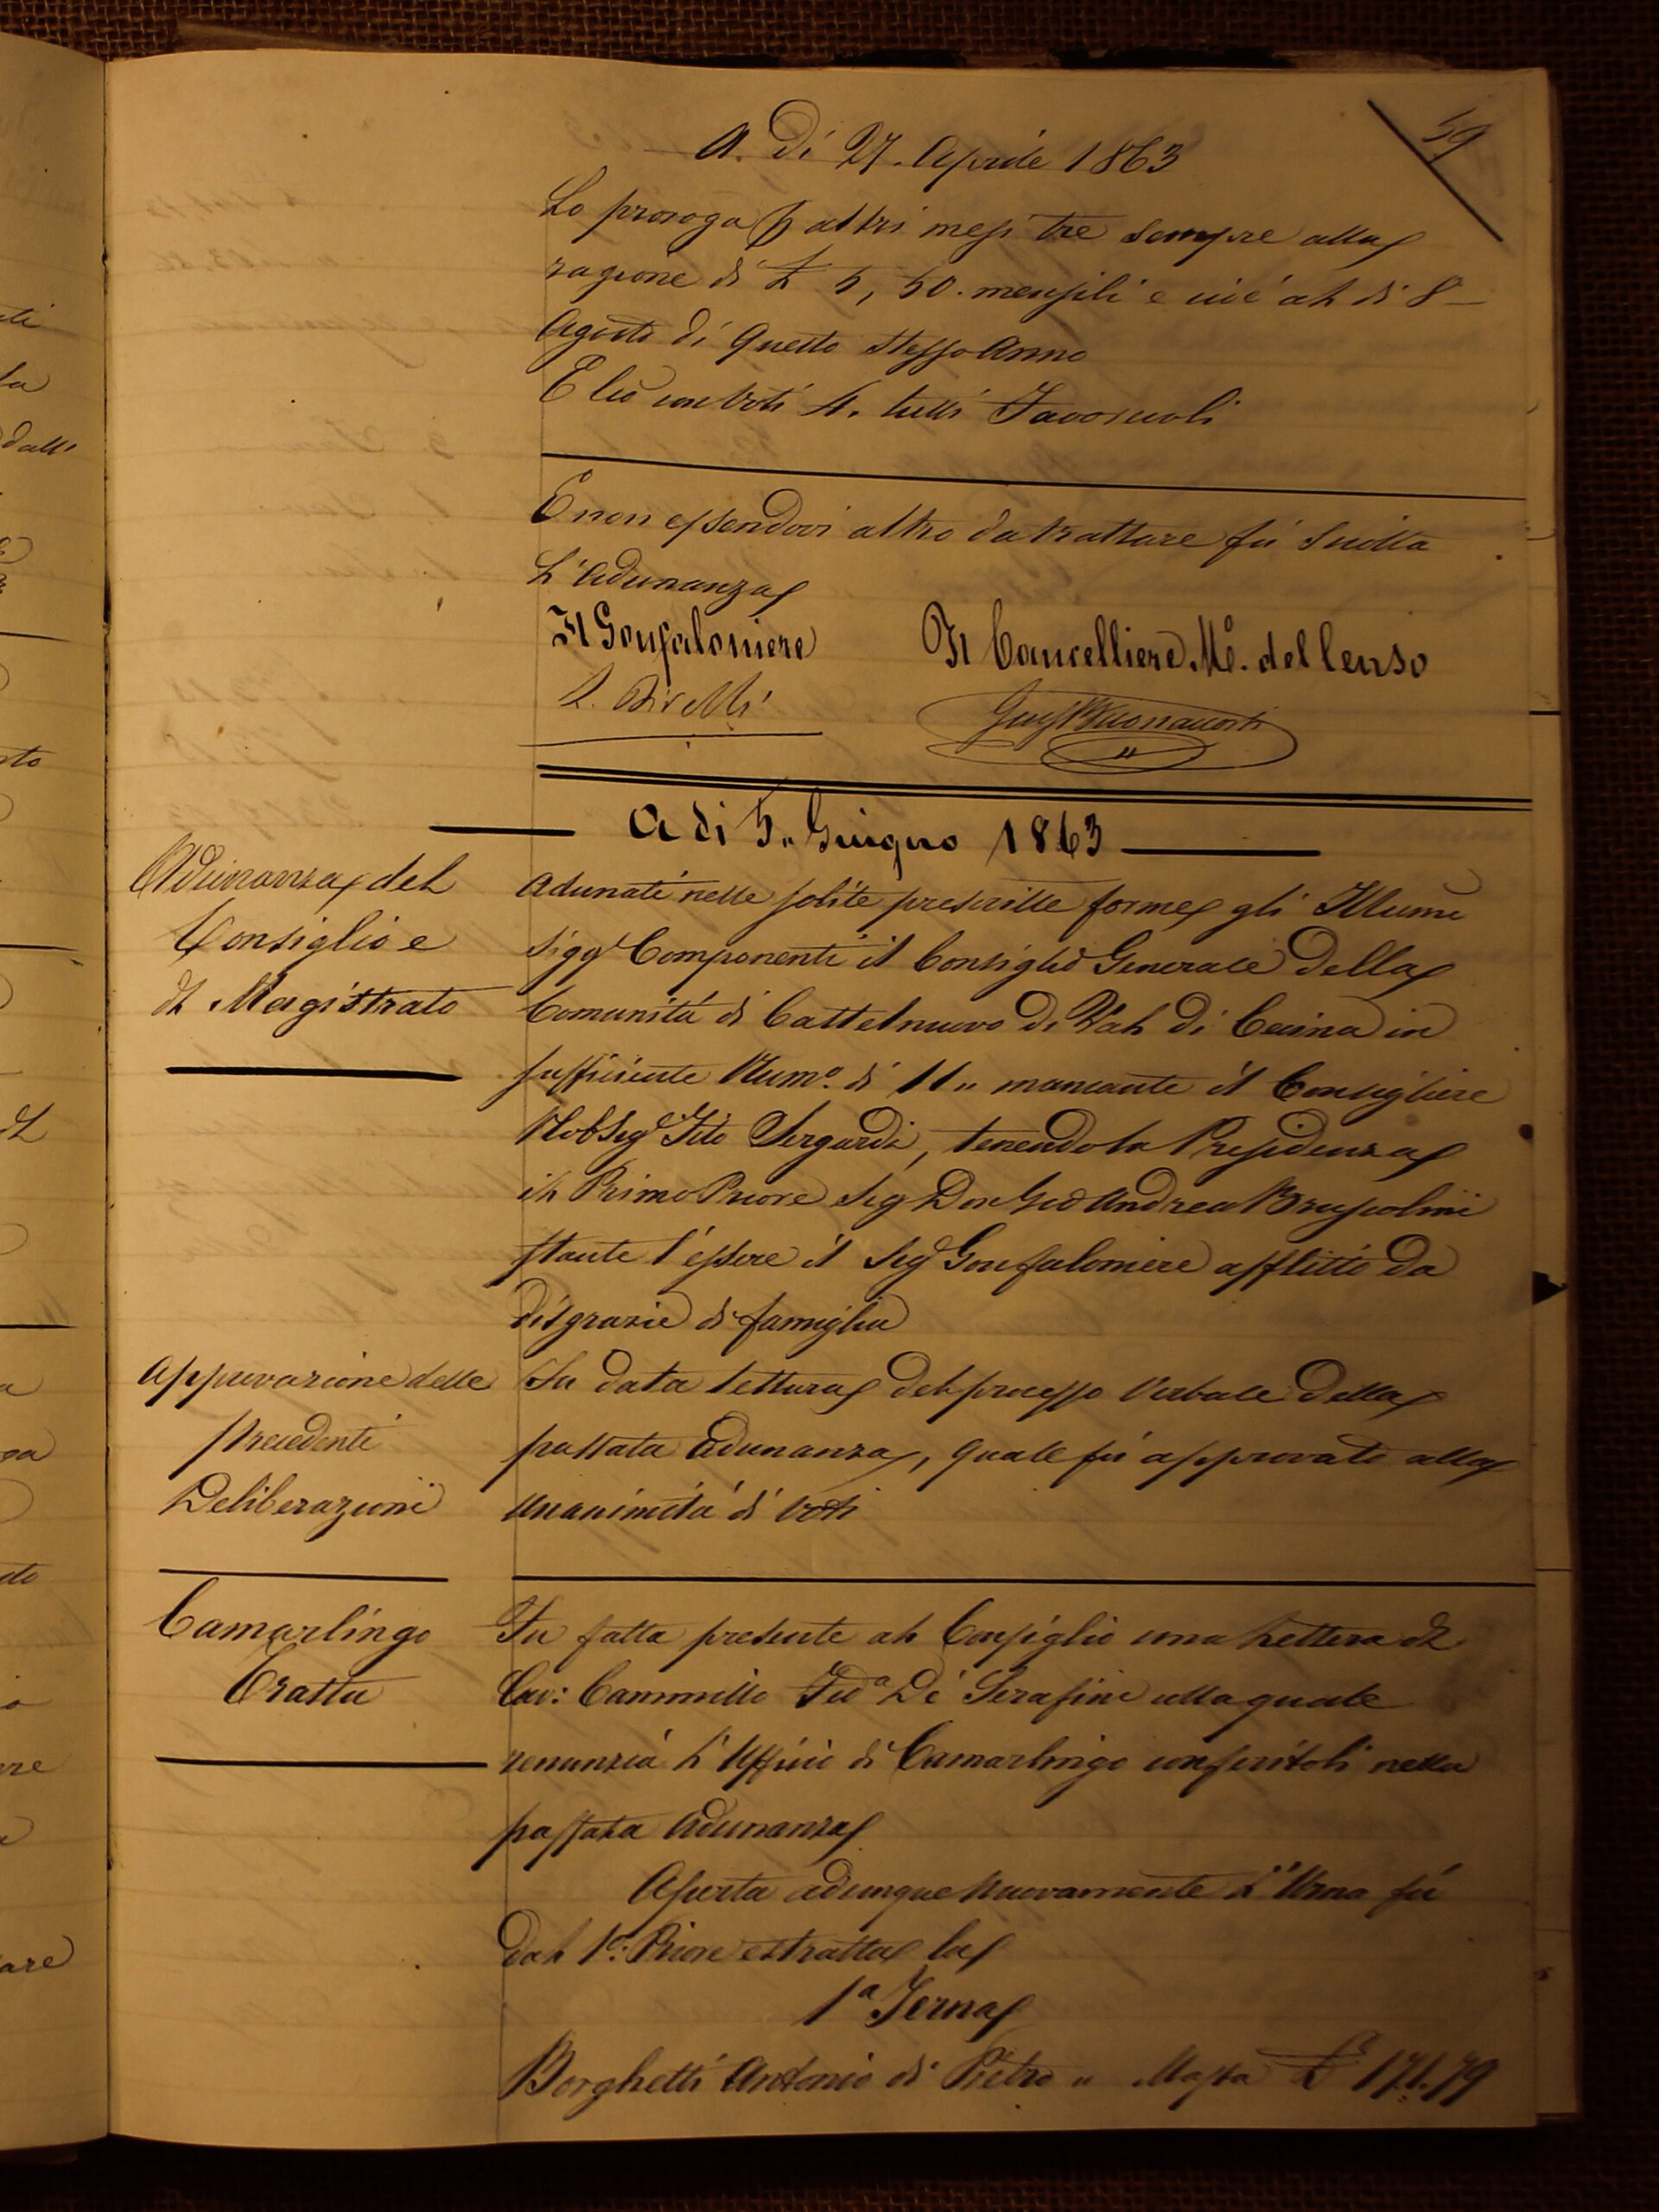 59
A. Di 27. Aprile 1863
La proroga p altri mesi tre sempre alla
ragione di £ 5, 50. mensili e cioè al di 8
Agosto di Questo stesso Anno
E ciò con Voti 4. tutti Favorevoli
E non essendovi altro da trattare fù Sciolta
L'Adunanza
Il Gonfaloniere
Il Cancelliere M.e del Censo
A di 5. Giugno 1863
Adunanza del
Consiglio e
di Magistrato
Adunati nelle solite prescritte forme gli Illumi
Sigg.i Componenti il Consiglio Generale Della
Comunità di Castelnuovo Di Val di Cecina in
sufficiente Num.o di 11,, mancante il Consigliere
Nob Sig.e Tito Sergardi, tenendo la Presidenza
il Primo Priore Sig Don Gio Andrea Bruscolini
stante l'essere il Sig.e Gonfaloniere afflitto Da
disgrazie di famiglia
Approvazione delle
precedenti
Deliberazioni
Fu data lettura del processo Verbale Della
passata Adunanza, quale fù approvato alla
unanimità di Voti
Camarlingo
Tratta
Fu fatta presente al Consiglio una Lettera di
Cav: Cammillo De Serafini colla quale
renunzia L'Uffizio di Camarlingo conferitoli nella
passata Adunanza
Aperta adunque nuovamente L'Urna fù
Dal 1.o: Priore estratta la
1.a Terna
Borghetti Antonio di Pietro ,, Massa £ 171.79